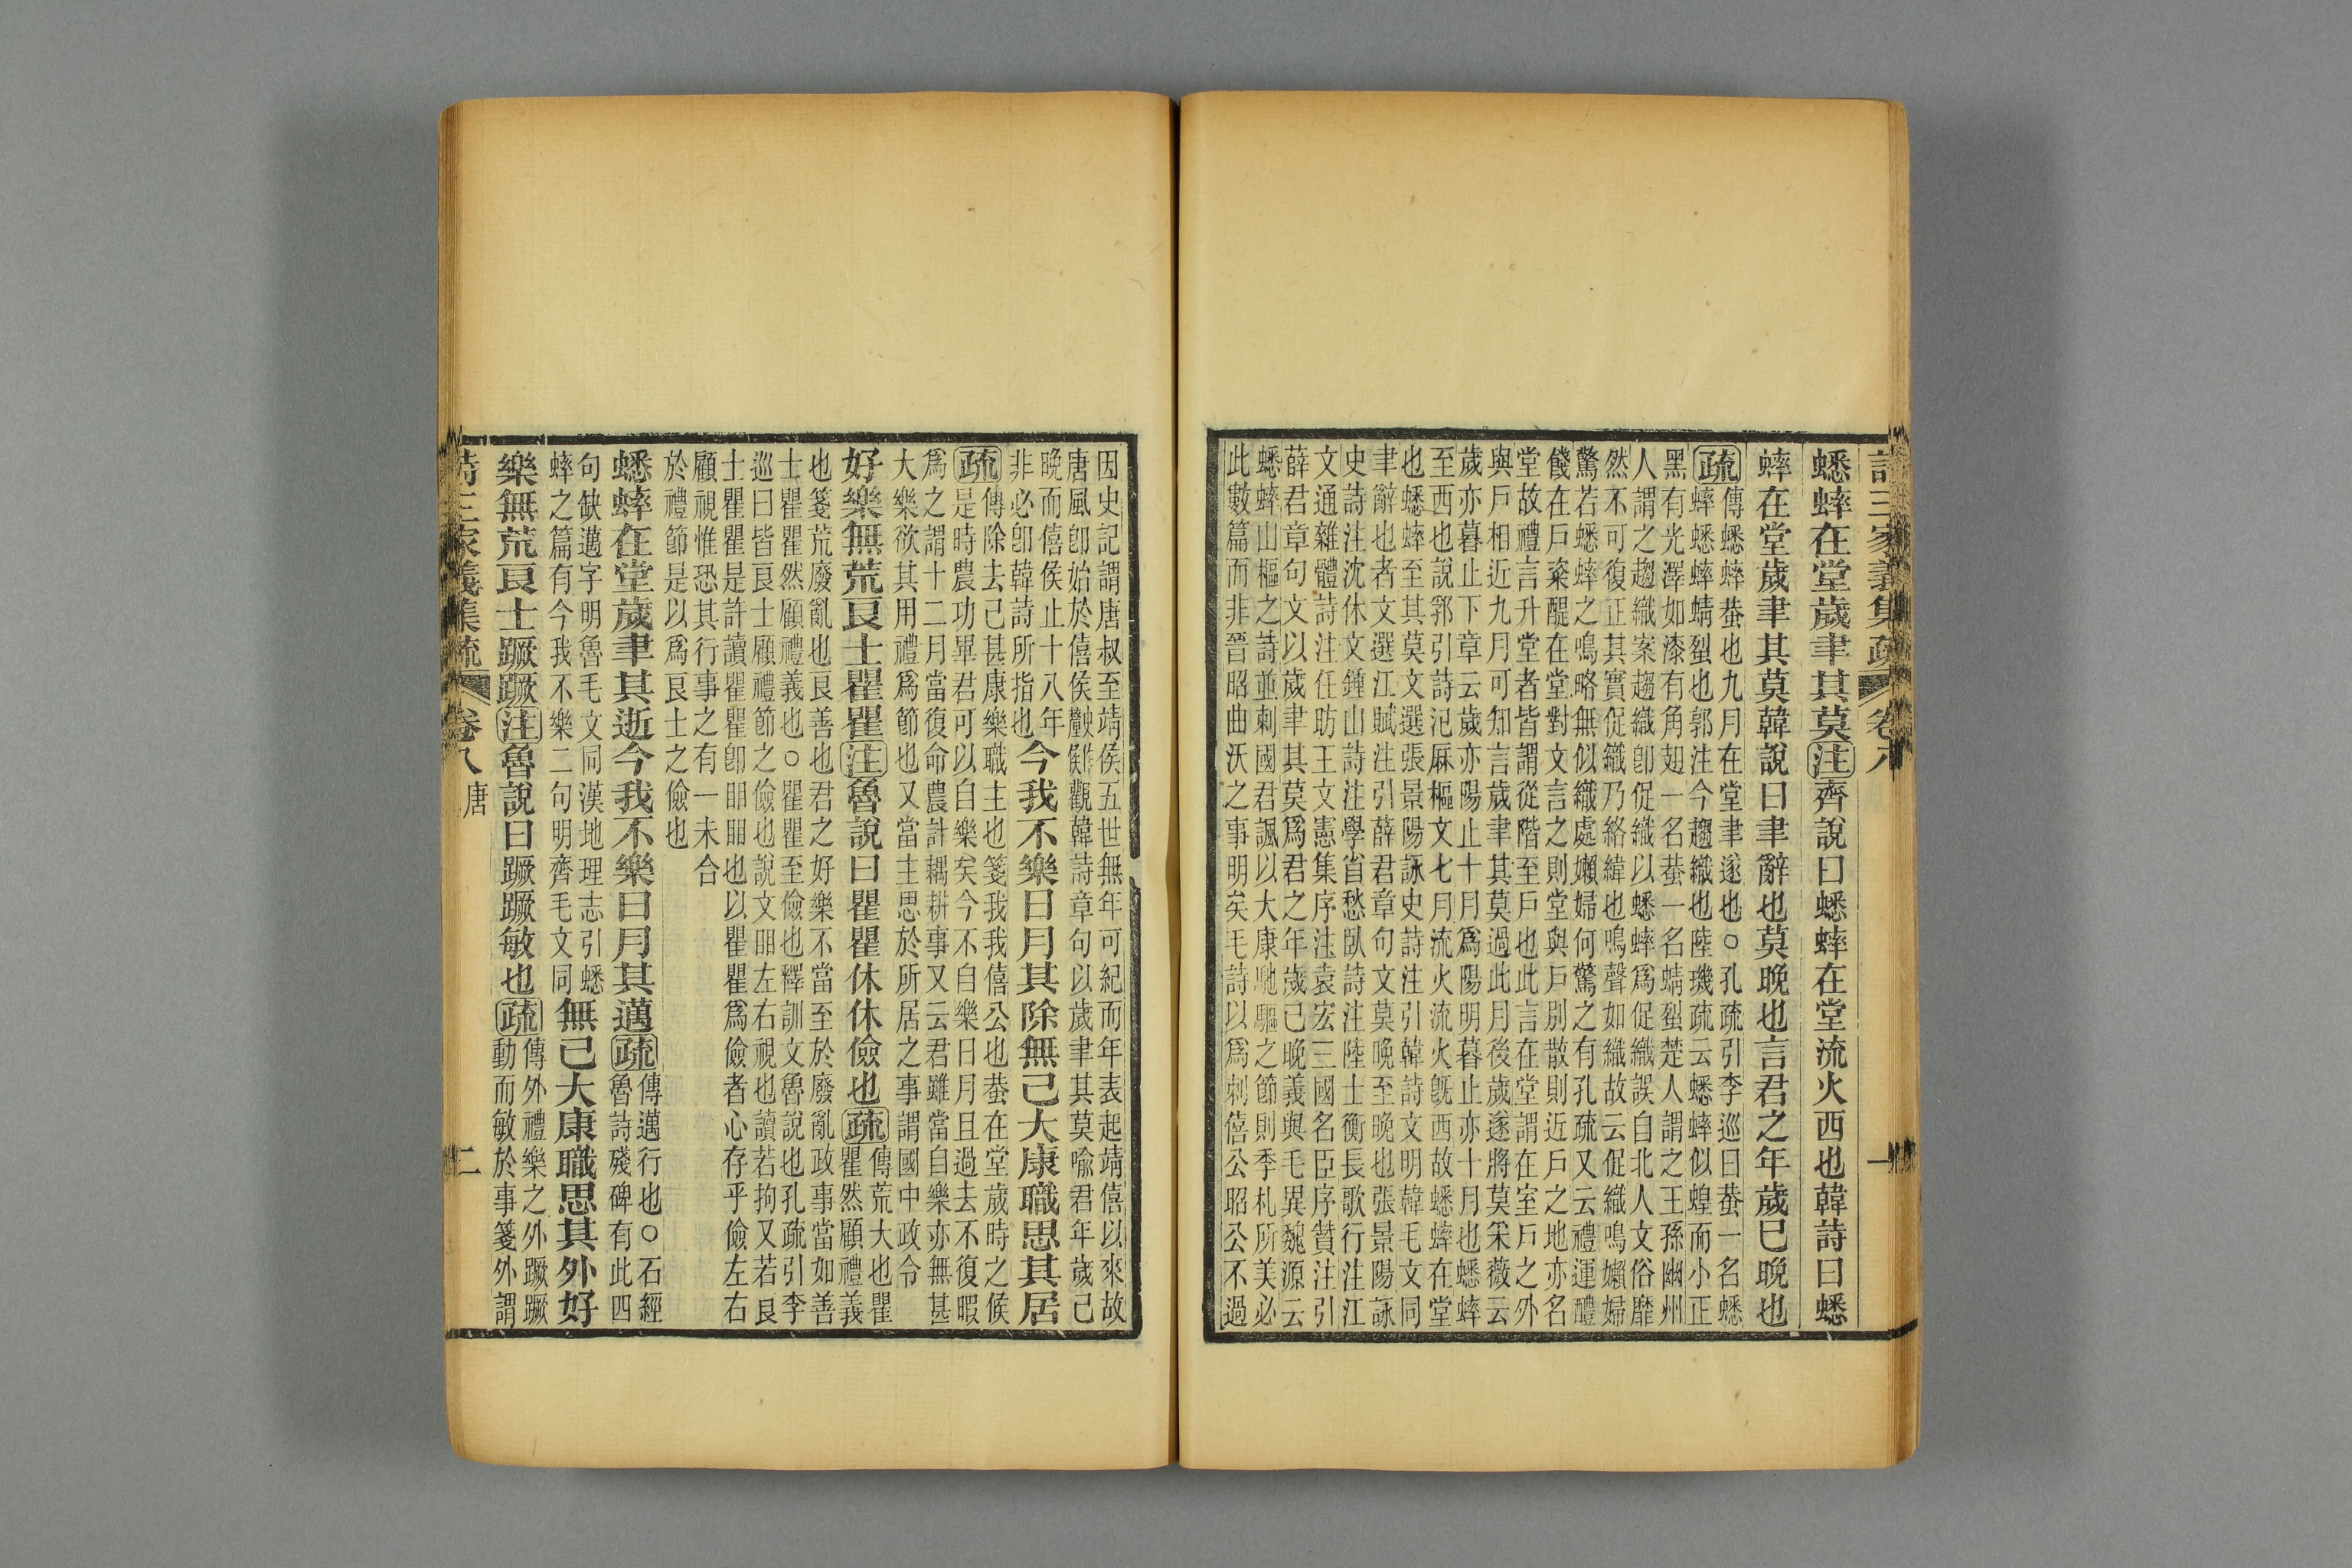 詩三家義集疏 卷八 一
蟋蟀在堂歲聿其莫注齊說曰蟋蟀在堂流火西也韓詩曰蟋
蟀在堂歲聿其莫韓說曰聿辭也莫晚也言君之年歲已晚也
疏傳蟋蟀蛬也九月在堂聿遂也○孔疏引李巡曰蛬一名蟋
蟀蟋蟀蜻蛚也郭注今趨織也陸璣疏云蟋蟀似蝗而小正
黑有光澤如漆有角翅一名蛬一名蜻蛚楚人謂之王孫幽州
人謂之趨織案趨織卽促織以蟋蟀爲促織誤自北人文俗靡
然不可復正其實促織乃絡緯也鳴聲如織故云促織鳴嬾婦
驚若蟋蟀之鳴略無似織處嬾婦何驚之有孔疏又云禮運醴
餞在戶粢醍在堂對文言之則堂與戶別散則近戶之地亦名
堂故禮言升堂者皆謂從階至戶也此言在堂謂在室戶之外
與戶相近九月可知言歲聿其莫過此月後歲遂將莫采薇云
歲亦暮止下章云歲亦陽止十月爲陽明暮止亦十月也蟋蟀
至西也說郛引詩氾厤樞文七月流火流火旣西故蟋蟀在堂
也蟋蟀至其莫文選張景陽詠史詩注引韓詩文明韓毛文同
聿辭也者文選江賦注引薛君章句文莫晚至晚也張景陽詠
史詩注沈休文鍾山詩注學省愁臥詩注陸士衡長歌行注江
文通雜體詩注任昉王文憲集序注袁宏三國名臣序贊注引
薛君章句文以歲聿其莫爲君之年歲已晚義與毛異魏源云
蟋蟀山樞之詩並刺國君諷以大康馳驅之節則季札所美必
此數篇而非晉昭曲沃之事明矣毛詩以爲刺僖公昭公不過
因史記謂唐叔至靖侯五世無年可紀而年表起靖僖以來故
唐風卽始於僖侯觀韓詩章句以歲聿其莫喻君年歲己
晚而僖侯止十八年
非必卽韓詩所指也今我不樂日月其除無已大康職思其居
疏傳除去已甚康樂職主也箋我我僖公也蛬在堂歲時之候
是時農功畢君可以自樂矣今不自樂日月且過去不復暇
爲之謂十二月當復命農計耦耕事又云君雖當自樂亦無甚
大樂欲其用禮爲節也又當主思於所居之事謂國中政令
好樂無荒良士瞿瞿注魯說曰瞿瞿休休儉也疏傳荒大也瞿
瞿然顧禮義
也箋荒廢亂也良善也君之好樂不當至於廢亂政事當如善
士瞿瞿然顧禮義也○瞿瞿至儉也釋訓文魯說也孔疏引李
巡曰皆良士顧禮節之儉也說文䀠左右視也讀若拘又若良
士瞿瞿是許讀瞿瞿卽䀠䀠也以瞿瞿爲儉者心存乎儉左右
顧視惟恐其行事之有一未合
於禮節是以爲良士之儉也
蟋蟀在堂歲聿其逝今我不樂日月其邁疏傳邁行也○石經
魯詩殘碑有此四
句缺邁字明魯毛文同漢地理志引蟋
蟀之篇有今我不樂二句明齊毛文同無已大康職思其外好
樂無荒良士蹶蹶注魯說曰蹶蹶敏也疏傳外禮樂之外蹶蹶
動而敏於事箋外謂
詩三家義集疏 卷八 唐 二